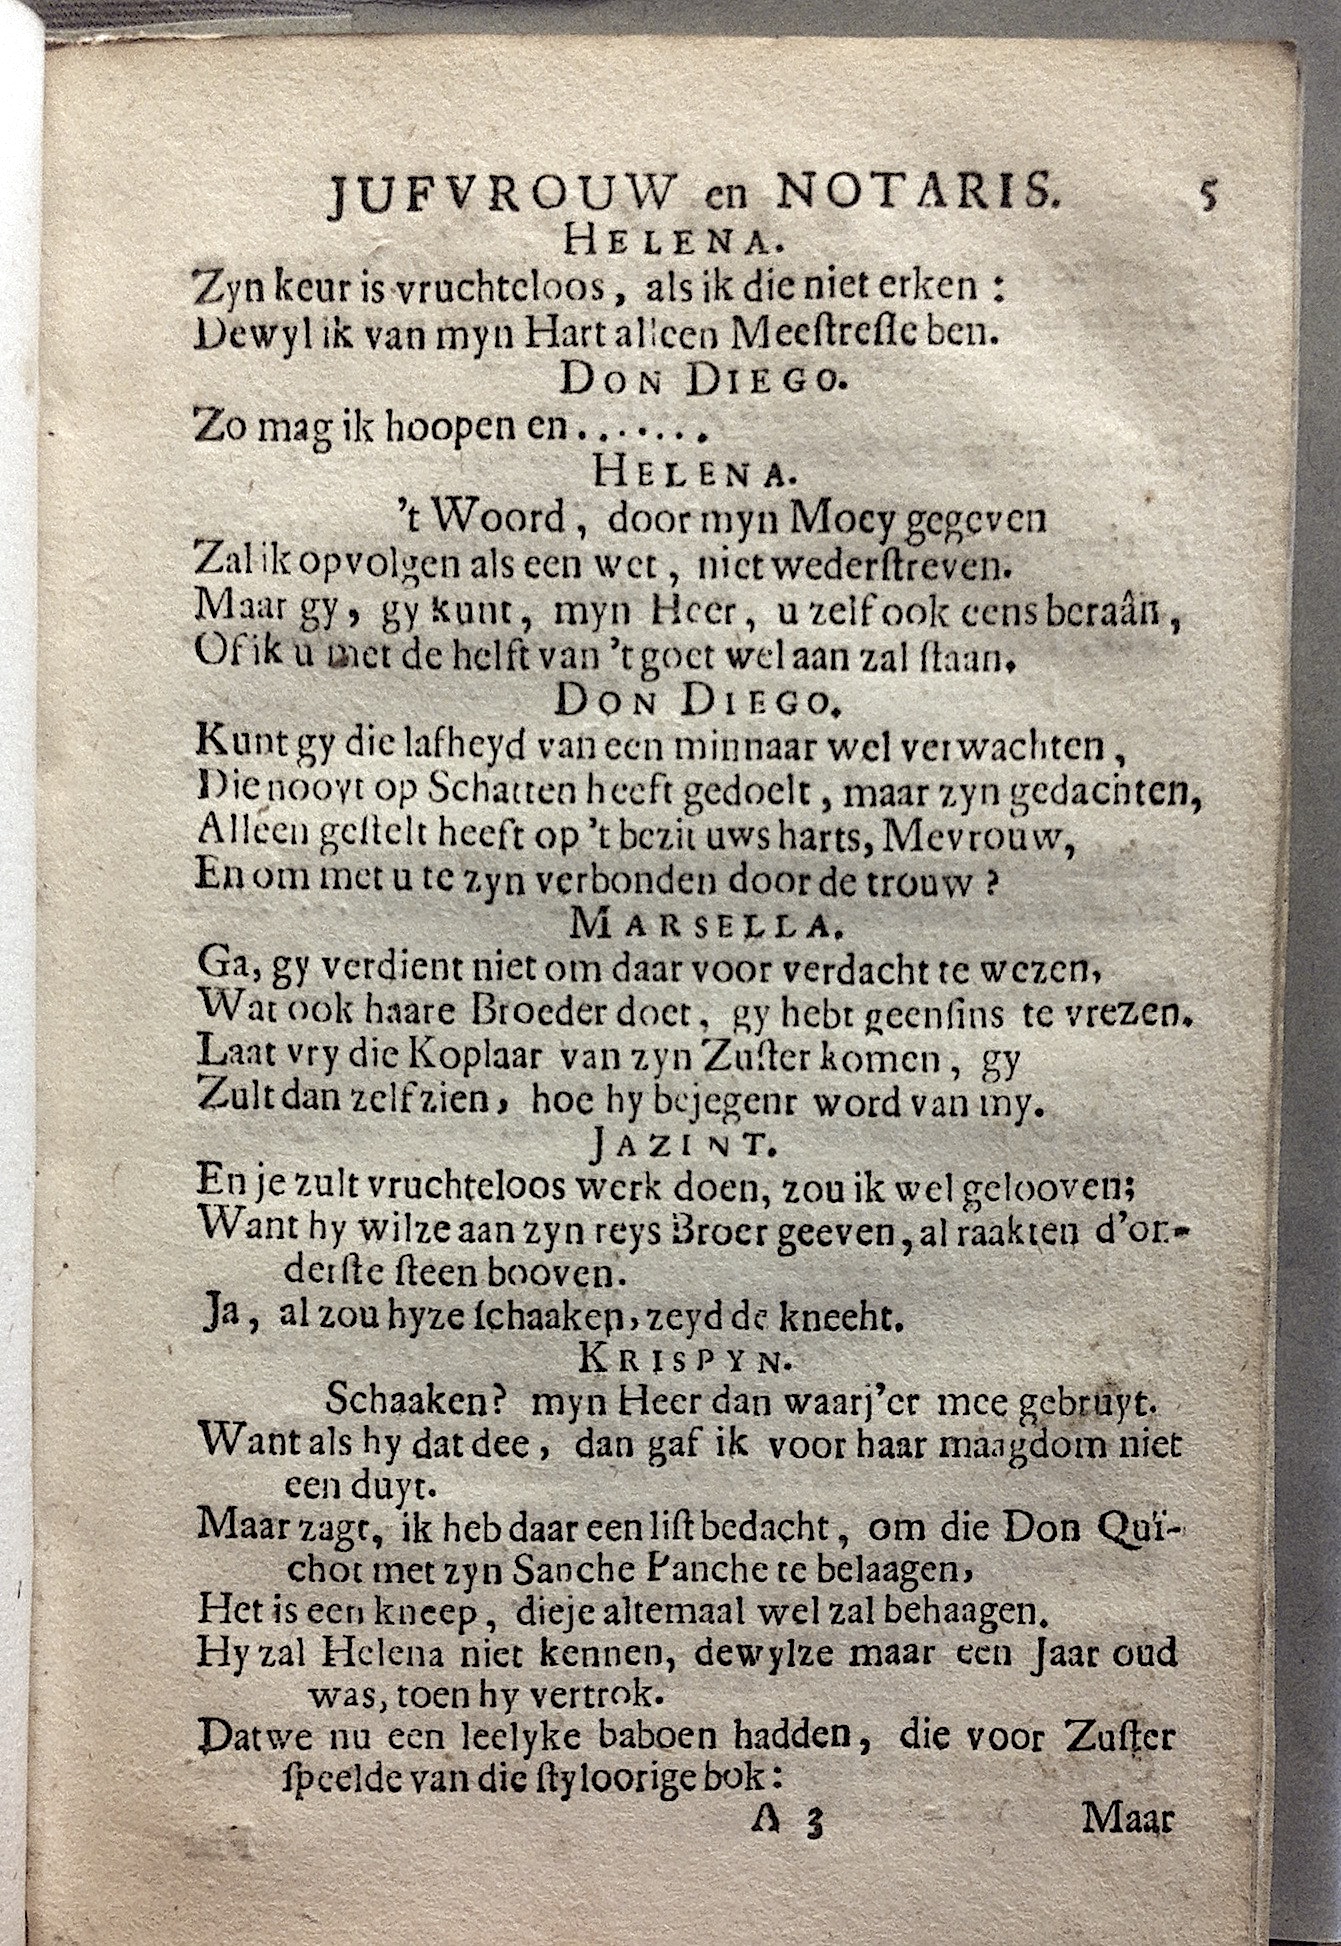 JUFVROUW en NOTARIS. 5
HELENA.
Zyn keur is vruchteloos, als ik die niet erken:
Dewyl ik van myn Hart alleen Meeſtreſſe ben.
DON DIEGO.
Zo mag ik hoopen en.......
HELENA.
't Woord, door myn Moey gegeven
Zal ik opvolgen als een wet, niet wederſtreven.
Maar gy, gy kunt, myn Heer, u zelf ook eens beraân,
Of ik u met de helft van 't goet wel aan zal ſtaan.
DON DIEGO.
Kunt gy die lafheyd van een minnaar wel verwachten,
Die nooyt op Schatten heeft gedoelt, maar zyn gedachten,
Alléen geſtelt heeft op 't bezit uws harts, Mevrouw,
En om met u te zyn verbonden door de trouw?
MARSELLA.
Ga, gy verdient niet om daar voor verdacht te wezen,
Wat ook haare Broeder doet, gy hebt geenſins te vrezen.
Laat vry die Koplaar van zyn Zuſter komen, gy
Zult dan zelf zien, hoe hy bejegent word van my.
JAZINT.
En je zult vruchteloos werk doen, zou ik wel gelooven;
Want hy wilze aan zyn reys Broer geeven, al raakten d'on-
derſte ſteen booven.
Ja, al zou hyze ſchaaken, zeyd de kneeht.
KRISPYN.
Schaaken? myn Heer dan waarj'er mee gebruyt.
Want als hy dat dee, dan gaf ik voor haar maagdom niet
een duyt.
Maar zagt, ik heb daar een liſt bedacht, om die Don Quï-
chot met zyn Sanche Panche te belaagen,
Het is een kneep, dieje altemaal wel zal behaagen.
Hy zal Helena niet kennen, dewylze maar een Jaar oud
was, toen hy vertrok.
Datwe nu een leelyke baboen hadden, die voor Zuſter
ſpeelde van die ſtyloorige bok:
A 3 Maar